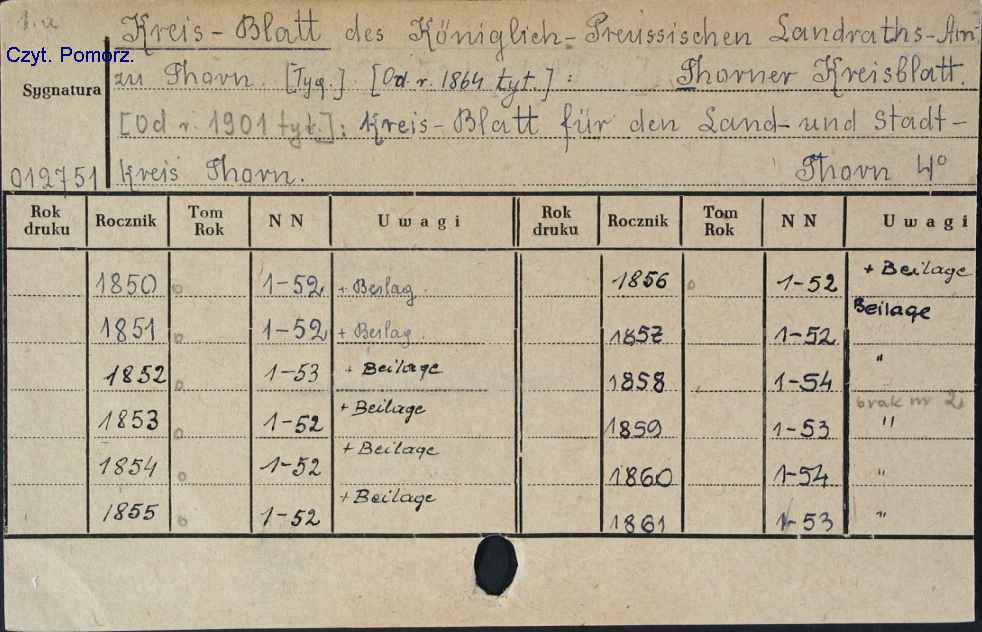 Kreis-Blatt des Königlich-Preussischen Landraths-Am
Czyt. Pomorz.
zu Thorn. [Tyg.] [Od r. 1864 tyt.]: Thorner Kreisblatt.
Sygnatura
[Od r. 1901 tyt.]: Kreis-Blatt für den Land- und Stadt-
012751 kreis Thorn. Thorn 4°
Rok druku Rocznik Tom Rok NN Uwagi Rok druku Rocznik Tom Rok NN Uwagi
1850 1-52 + Beilag. 1856 1-52 + Beilage
1851 1-52 + Beilag. 1857 1-52 Beilage
1852 1-53 + Beilage 1858 1-54 "
1853 1-52 + Beilage 1859 1-53 brak nr 2 "
1854 1-52 + Beilage 1860 1-54 "
1855 1-52 + Beilage 1861 1-53 "